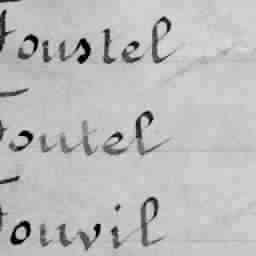 Foustel
Foutel
Fouvil